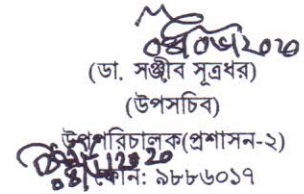 (ডা. সঞ্জীব সূত্রধর)
(উপসচিব)
উপপরিচালক(প্রশাসন-২)
ফোন: ৯৮৮৬০১৭